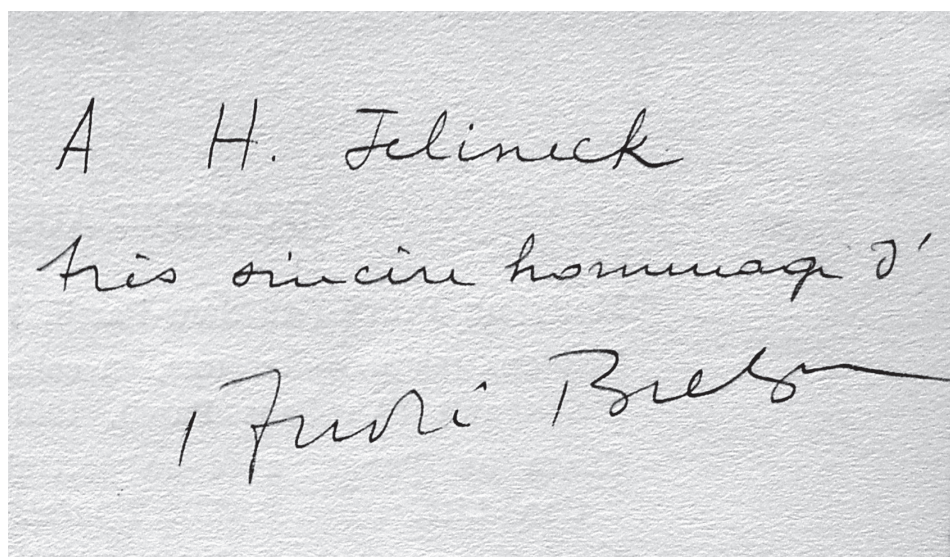 A H. Jelineck
très sincère hommage d'
André Breton